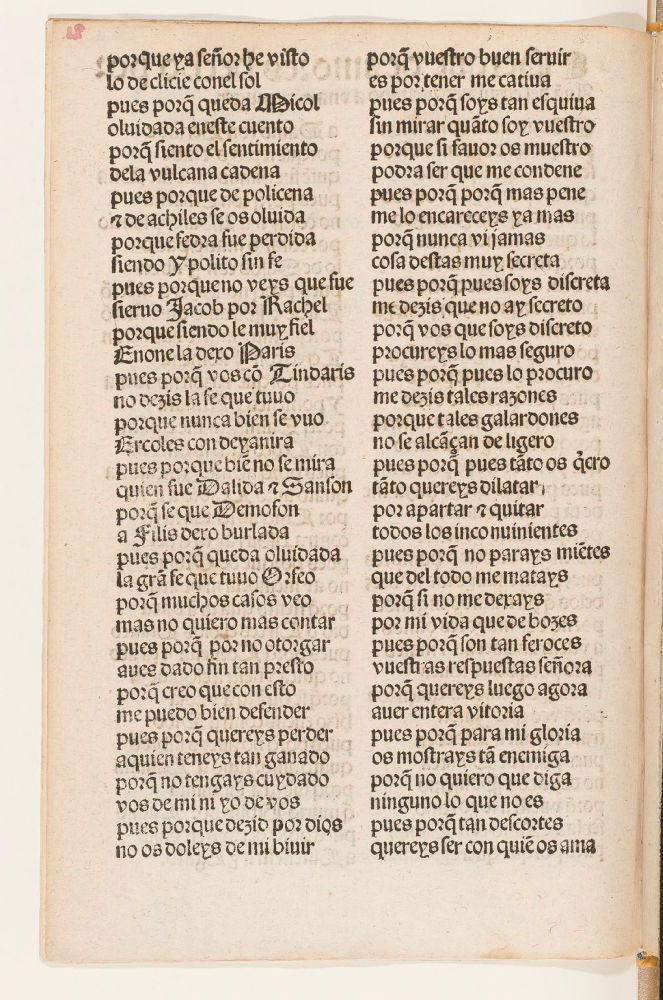 porque ya señor he visto
lo de clicie conel sol
pues porq̃ queda Micol
oluidada eneste cuento
porq̃ siento el sentimiento
dela vulcana cadena
pues porque de policena
⁊ de achiles se os oluida
porque fedra fue perdida
siendo Ypolito sin fe
pues porque no veys que fue
sieruo Jacob por Rachel
porque siendo le muy fiel
Enone la dexo Paris
pues porq̃ vos cõ Tindaris
no dezis la fe que tuuo
porque nunca bien se vuo
Ercoles con deyanira
pues porque biẽ no se mira
quien fue Dalida ⁊ Sanson
porq̃ se que Demofon
a Filis dexo burlada
pues porq̃ queda oluidada
la grã fe que tuuo Orfeo
porq̃ muchos casos veo
mas no quiero mas contar
pues porq̃ por no otorgar
aues dado fin tan presto
porq̃ creo que con esto
me puedo bien defender
pues porq̃ quereys perder
aquien teneys tan ganado
porq̃ no tengays cuydado
vos de mi ni yo de vos
pues porque dezid por dios
no os doleys de mi biuir
porq̃ vuestro buen seruir
es por tener me catiua
pues porq̃ soys tan esquiua
sin mirar quãto soy vuestro
porque si fauor os muestro
podra ser que me condene
pues porq̃ porq̃ mas pene
me lo encareceys ya mas
porq̃ nunca vi jamas
cosa destas muy secreta
pues porq̃ pues soys discreta
me dezis que no ay secreto
porq̃ vos que soys discreto
procureys lo mas seguro
pues porq̃ pues lo procuro
me dezis tales razones
porque tales galardones
no se alcãçan de ligero
pues porq̃ pues tãto os q̃ero
tãto quereys dilatar
por apartar ⁊ quitar
todos los inconuinientes
pues porq̃ no parays miẽtes
que del todo me matays
porq̃ si no me dexays
por mi vida que de bozes
pues porq̃ son tan feroces
vuestras respuestas señora
porq̃ quereys luego agora
auer entera vitoria
pues porq̃ para mi gloria
os mostrays tã enemiga
porq̃ no quiero que diga
ninguno lo que no es
pues porq̃ tan descortes
quereys ser con quiẽ os ama